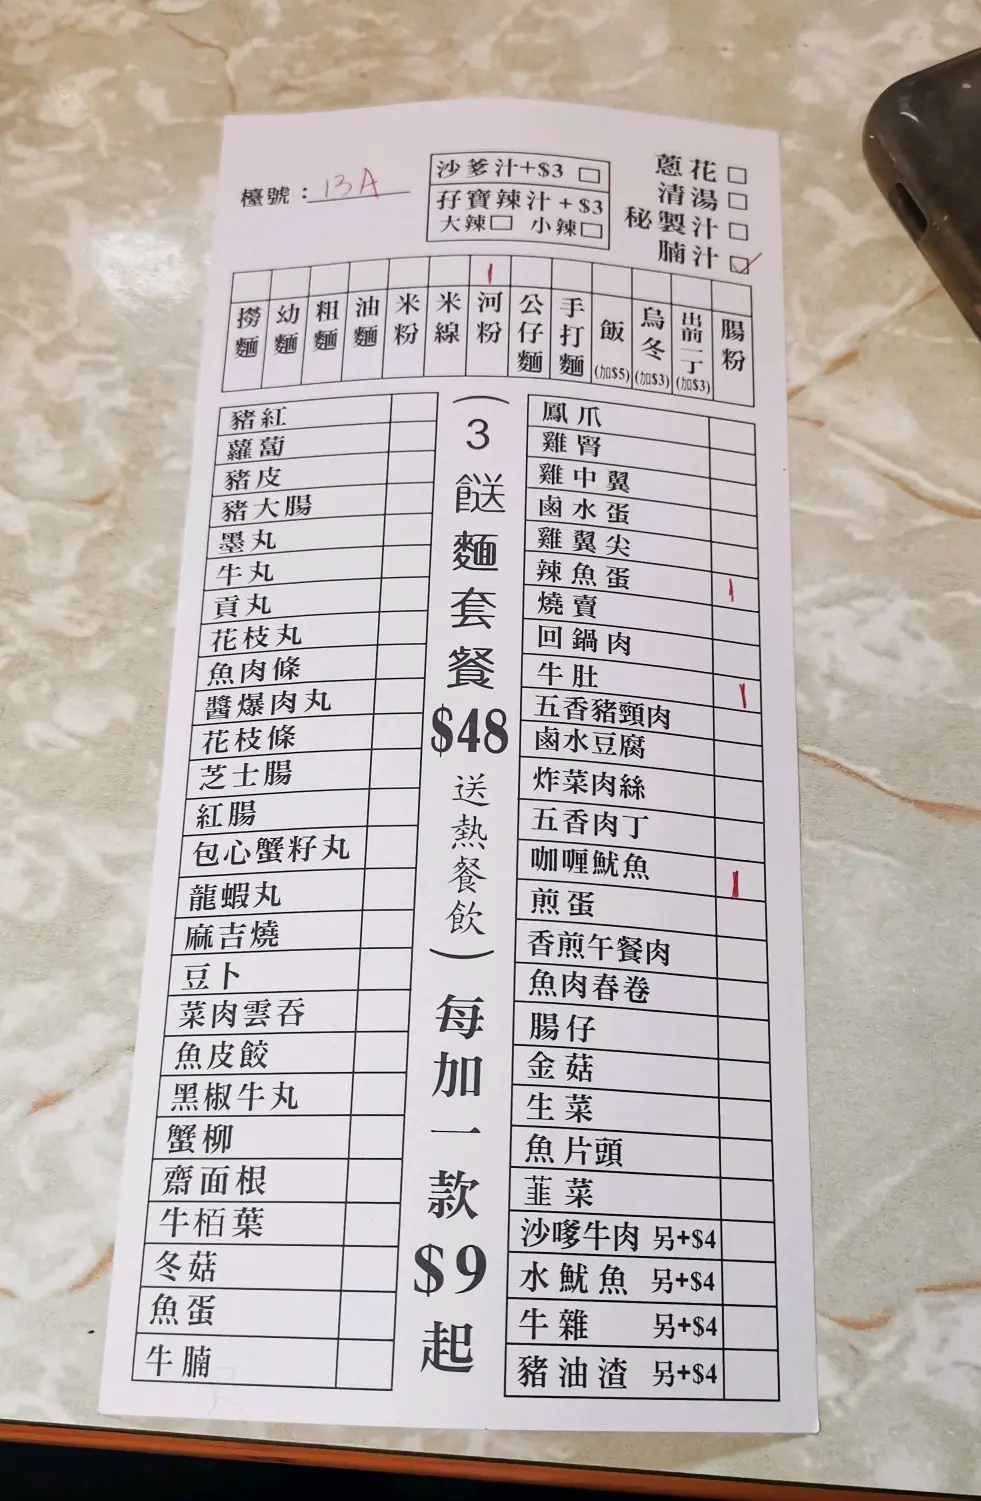 檯號：13A
沙爹汁+$3 □
孖寶辣汁+$3
大辣□ 小辣□
蔥花□
清湯□
秘製汁□
腩汁☑
1
撈麵
幼麵
粗麵
油麵
米粉
米線
河粉
公仔麵
手打麵
飯(加$5)
烏冬(加$3)
出前一丁(加$3)
腸粉
豬紅
蘿蔔
豬皮
豬大腸
墨丸
牛丸
貢丸
花枝丸
魚肉條
醬爆肉丸
花枝條
芝士腸
紅腸
包心蟹籽丸
龍蝦丸
麻吉燒
豆卜
菜肉雲吞
魚皮餃
黑椒牛丸
蟹柳
齋面根
牛栢葉
冬菇
魚蛋
牛腩
(3餸麵套餐$48送熱餐飲)每加一款$9起
鳳爪
雞腎
雞中翼
鹵水蛋
雞翼尖
辣魚蛋 1
燒賣
回鍋肉
牛肚 1
五香豬頸肉
鹵水豆腐
炸菜肉絲
五香肉丁
咖喱魷魚 1
煎蛋
香煎午餐肉
魚肉春卷
腸仔
金菇
生菜
魚片頭
韭菜
沙嗲牛肉 另+$4
水魷魚 另+$4
牛雜 另+$4
豬油渣 另+$4